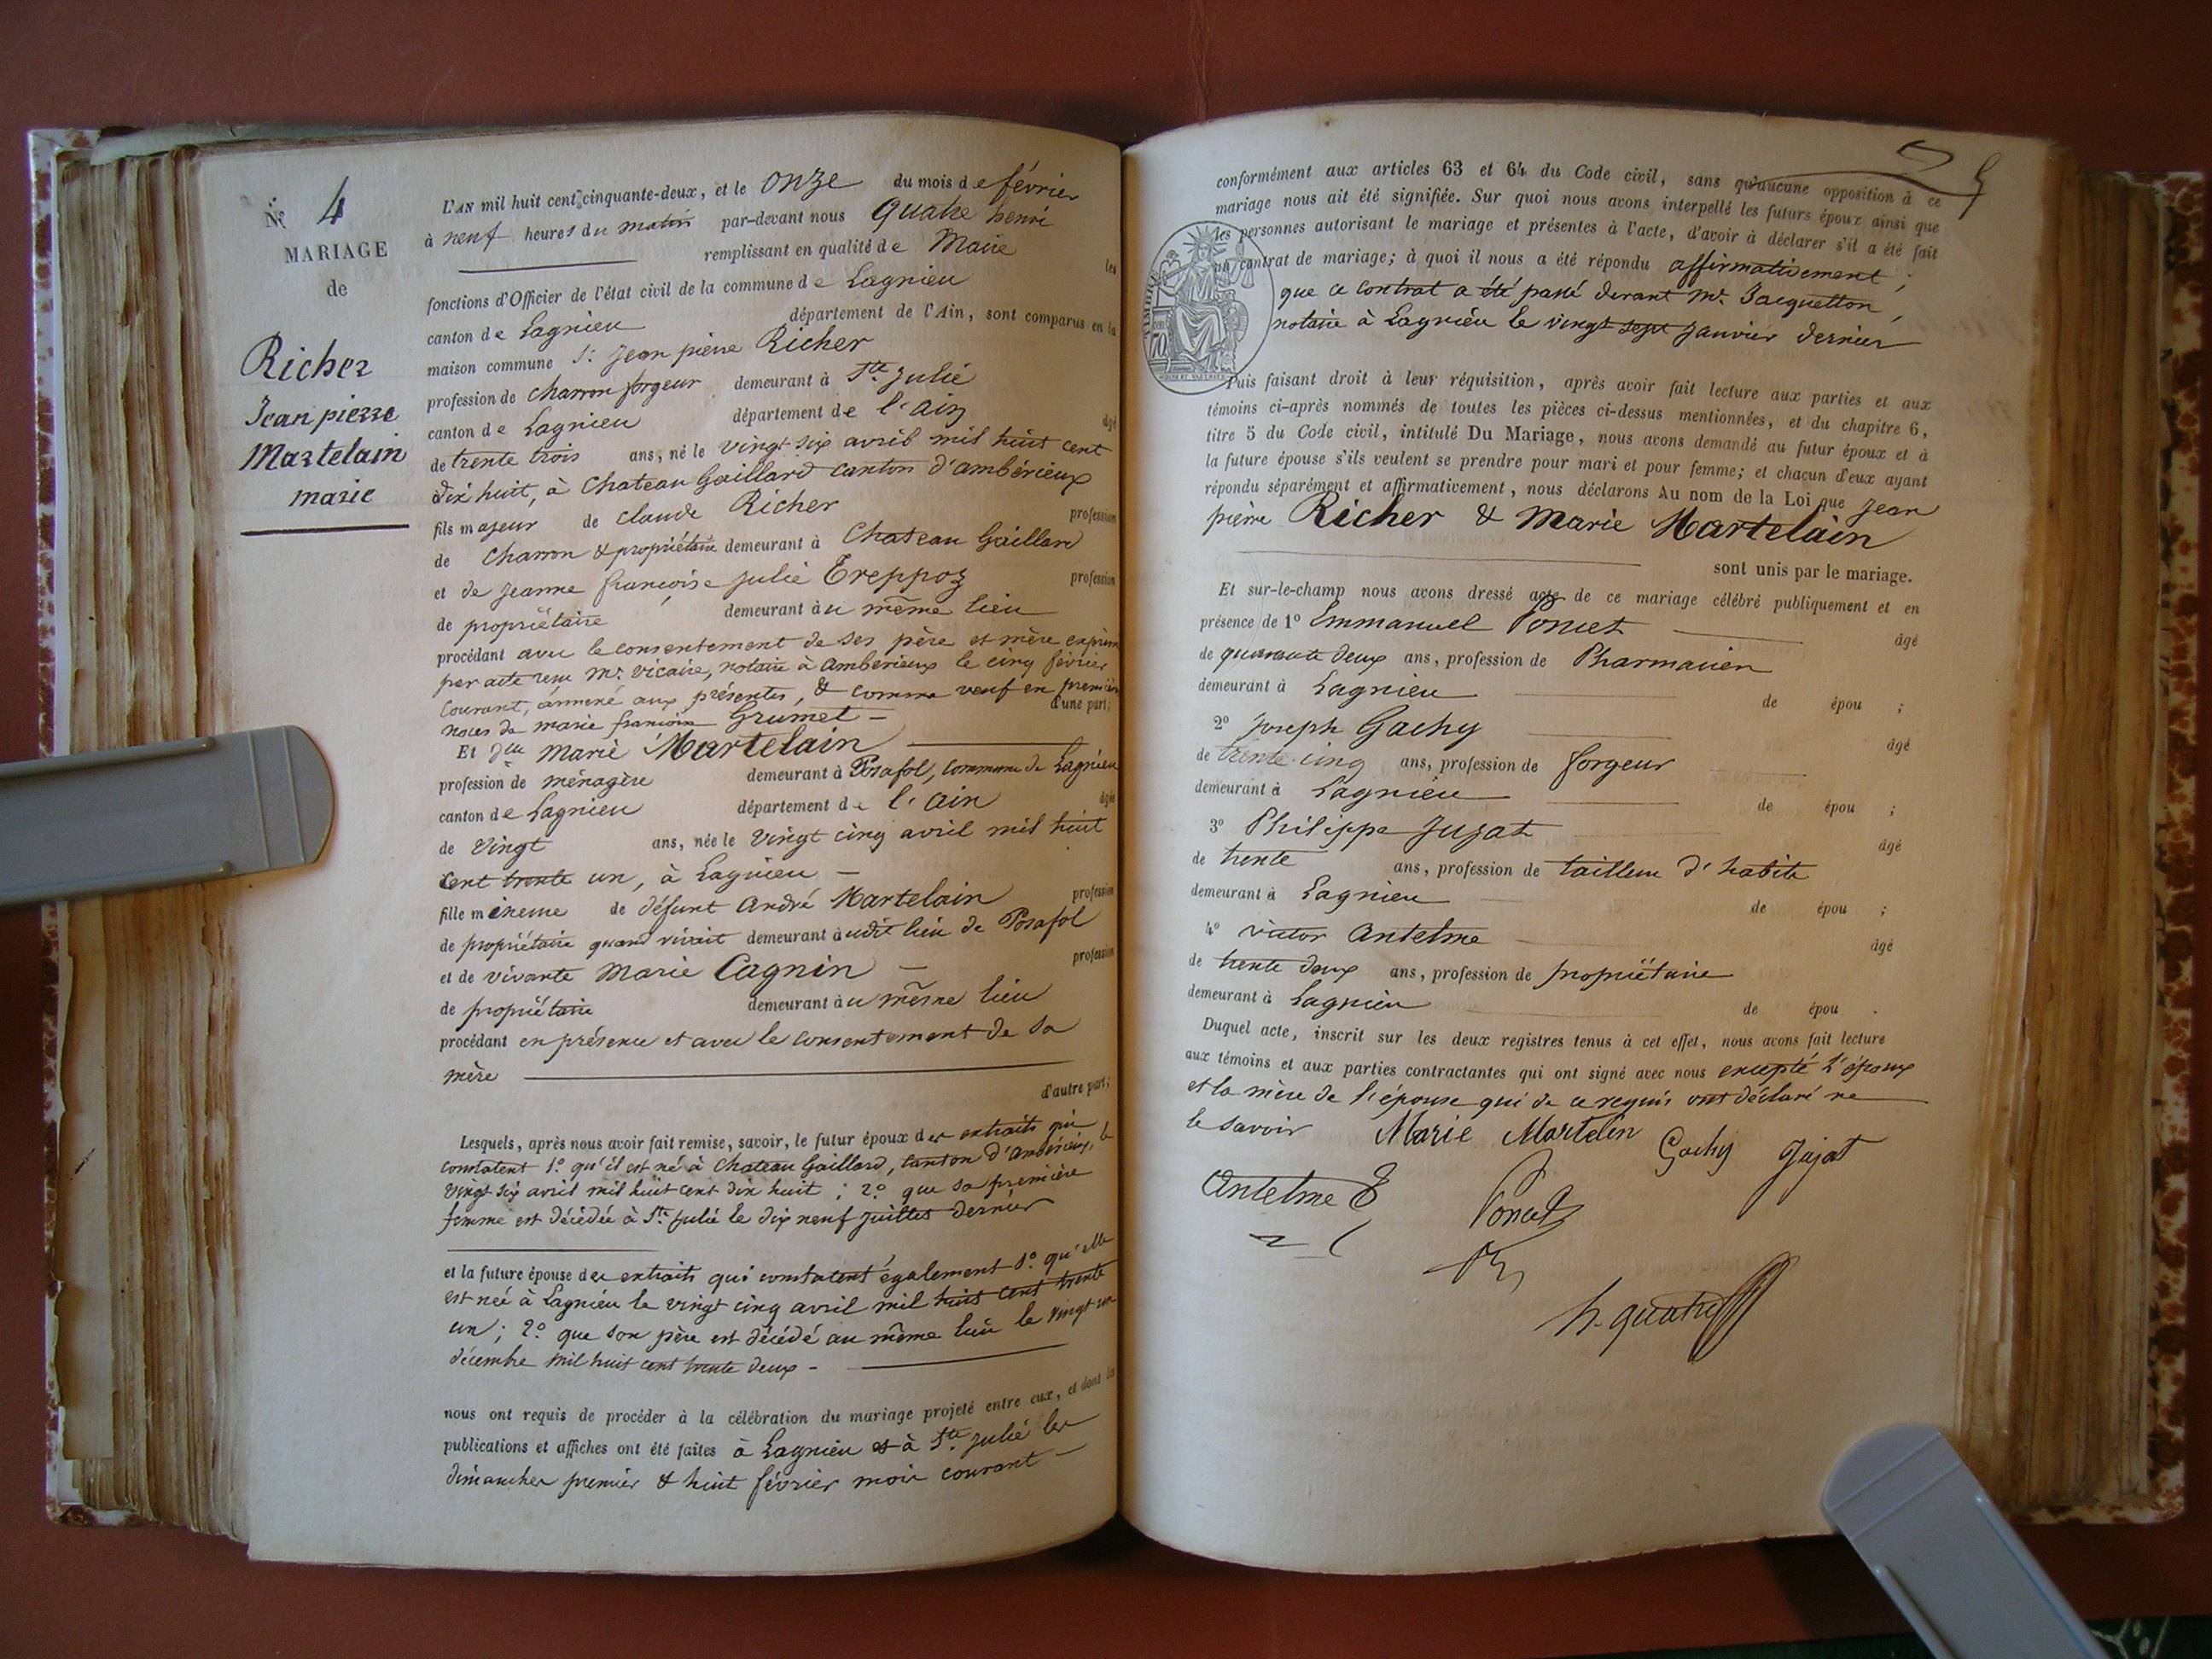 N.° 4
MARIAGE
de
Richer
Jean pierre
Martelain
marie
L'AN mil huit cent cinquante-deux, et le onze du mois de février
à neuf heures du matin par-devant nous Quatre henri
remplissant en qualité de Maire les
fonctions d'Officier de l'état civil de la commune de Lagnieu
canton de Lagnieu département de l'Ain, sont comparus en la
maison commune S.r Jean pierre Richer
profession de charron forgeur demeurant à S.te Julie
canton de Lagnieu département de l'ain âgé
de trente trois ans, né le vingt six avril mil huit cent
dix huit, à Chateau Gaillard canton d'ambérieux
fils majeur de claude Richer profession
de charron & propriétaire demeurant à Chateau Gaillard
et de jeanne françoise julie Treppoz profession
de propriétaire demeurant àu même lieu
procédant avec le consentement de ses père et mère exprimé
par acte reçu M.e Vicaire, notaire à ambérieux le cinq février
courant, annexé aux présentes, & comme veuf en premières
noces de marie françoise Grumet - d'une part;
Et d.lle Marie Martelain
profession de ménagère demeurant à Posafol, commune de Lagnieu
canton de Lagnieu département de l'ain âgée
de vingt ans, née le vingt cinq avril mil huit
cent trente un, à Lagnieu -
fille mineure de défunt André Martelain profession
de propriétaire quand vivait demeurant àudit lieu de Posafol
et de vivante Marie Cagnin - profession
de propriétaire demeurant àu même lieu
procédant en présence et avec le consentement de sa
mère
d'autre part;
Lesquels, après nous avoir fait remise, savoir, le futur époux des extraits qui
constatent 1.° qu'il est né à Chateau Gaillard, canton d'ambérieux, le
vingt six avril mil huit cent dix huit ; 2.° que sa première
femme est décédée à S.te Julie le dix neuf juillet dernier
et la future épouse des extraits qui constatent également 1.° qu'elle
est née à Lagnieu le vingt cinq avril mil huit cent trente
un ; 2.° que son père est décédé au même lieu le vingt
décembre mil huit cent trente deux -
nous ont requis de procéder à la célébration du mariage projeté entre eux, et dont les
publications et affiches ont été faites à Lagnieu et à S.te Julie les
dimanches premier & huit février mois courant -
5
conformément aux articles 63 et 64 du Code civil, sans qu'aucune opposition à ce
mariage nous ait été signifiée. Sur quoi nous avons interpellé les futurs époux ainsi que
les personnes autorisant le mariage et présentes à l'acte, d'avoir à déclarer s'il a été fait
un contrat de mariage; à quoi il nous a été répondu affirmativement ;
que ce contrat a été passé devant M.e Jacquetton,
notaire à Lagnieu le vingt sept janvier dernier
Puis faisant droit à leur réquisition, après avoir fait lecture aux parties et aux
témoins ci-après nommés de toutes les pièces ci-dessus mentionnées, et du chapitre 6,
titre 5 du Code civil, intitulé Du Mariage, nous avons demandé au futur époux et à
la future épouse s'ils veulent se prendre pour mari et pour femme; et chacun d'eux ayant
répondu séparément et affirmativement, nous déclarons Au nom de la Loi que jean
pierre Richer & Marie Martelain
sont unis par le mariage.
Et sur-le-champ nous avons dressé acte de ce mariage célébré publiquement et en
présence de 1° Emmanuel Poncet âgé
de quarante deux ans, profession de Pharmacien
demeurant à Lagnieu de épou ;
2° joseph Gachy âgé
de trente cinq ans, profession de forgeur
demeurant à Lagnieu de épou ;
3° Philippe Jujat âgé
de trente ans, profession de tailleur d'habits
demeurant à Lagnieu de épou ;
4° victor Antelme âgé
de trente deux ans, profession de propriétaire
demeurant à Lagnieu de épou .
Duquel acte, inscrit sur les deux registres tenus à cet effet, nous avons fait lecture
aux témoins et aux parties contractantes qui ont signé avec nous excepté l'époux
et la mère de l'épouse qui de ce requis ont déclaré ne
le savoir Marie Martelin Gachy Jujat
Antelme Poncet
h. quatre